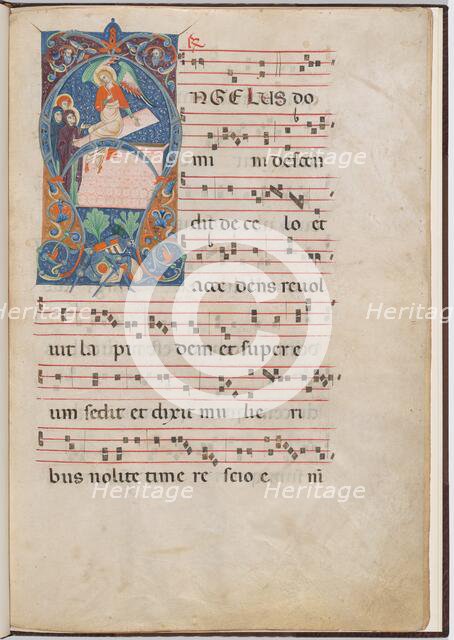 ANGELUS DO
mi ni descen
dit de ce lo et
acce dens revol
vit la pi dem et super e
um sedit et dixit mu lie ri
bus nolite time re scio e ni
Heritage
Heritage
Heritage
Heritage
Heritage
Heritage
Heritage
Heritage
Heritage